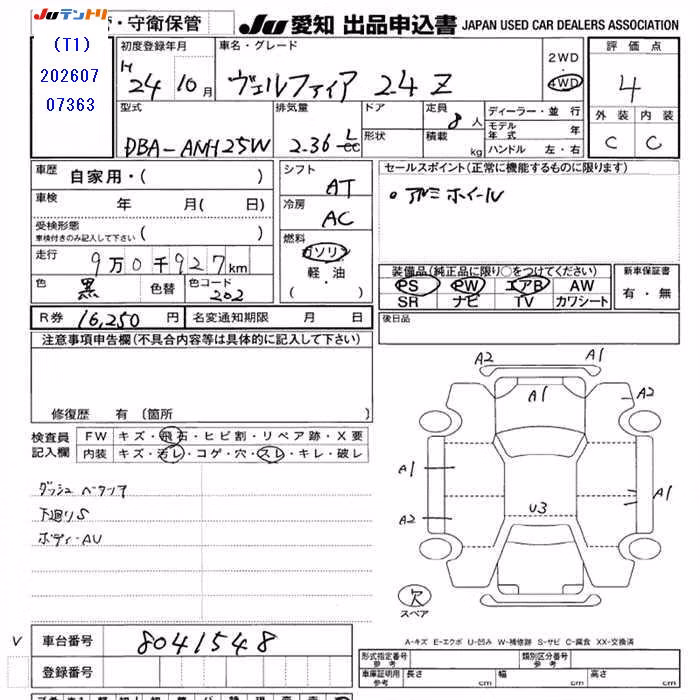 JUテントリ ・守衛保管 JU 愛知 出品申込書 JAPAN USED CAR DEALERS ASSOCIATION
(T1)
202607
07363
初度登録年月 車名・グレード 2WD 4WD 評価点
H 24 10月 ヴェルファイア 2.4 Z 4
型式 排気量 ドア 定員 8人 ディーラー・並行 外装 内装
DBA-ANH25W 2.36 L cc 形状 積載 kg モデル年式 年 C C
ハンドル 左・右
車歴 自家用・( ) シフト AT セールスポイント(正常に機能するものに限ります)
車検 年 月( 日) 冷房 AC ○アルミホイール
受検形態
車検付きのみ記入して下さい ( ) 燃料 ガソリン
走行 9万0千927km 軽・油 装備品(純正品に限り○をつけてください) 新車保証書
色 黒 色替 色コード 202 ( ) PS PW エアB AW 有・無
SR ナビ TV カワシート
R券 16,250円 名変通知期限 月 日 後日品
注意事項申告欄(不具合内容等は具体的に記入して下さい)
修復歴 有 (箇所
検査員 FW キズ・飛石・ヒビ割・リペア跡・X要
記入欄 内装 キズ・汚レ・コゲ・穴・スレ・キレ・破レ
ダッシュ ベタツア
下廻りS
ボディーAU
A2 A1
A1 A2
A1 A1
A2 U3
欠
スペア
A-キズ E-エクボ U-凹み W-補修跡 S-サビ C-腐食 XX-交換済
V 車台番号 8041548
登録番号
形式指定番号 参考 類別区分番号 参考
車庫証明用 参考 長さ cm 幅 cm 高さ cm